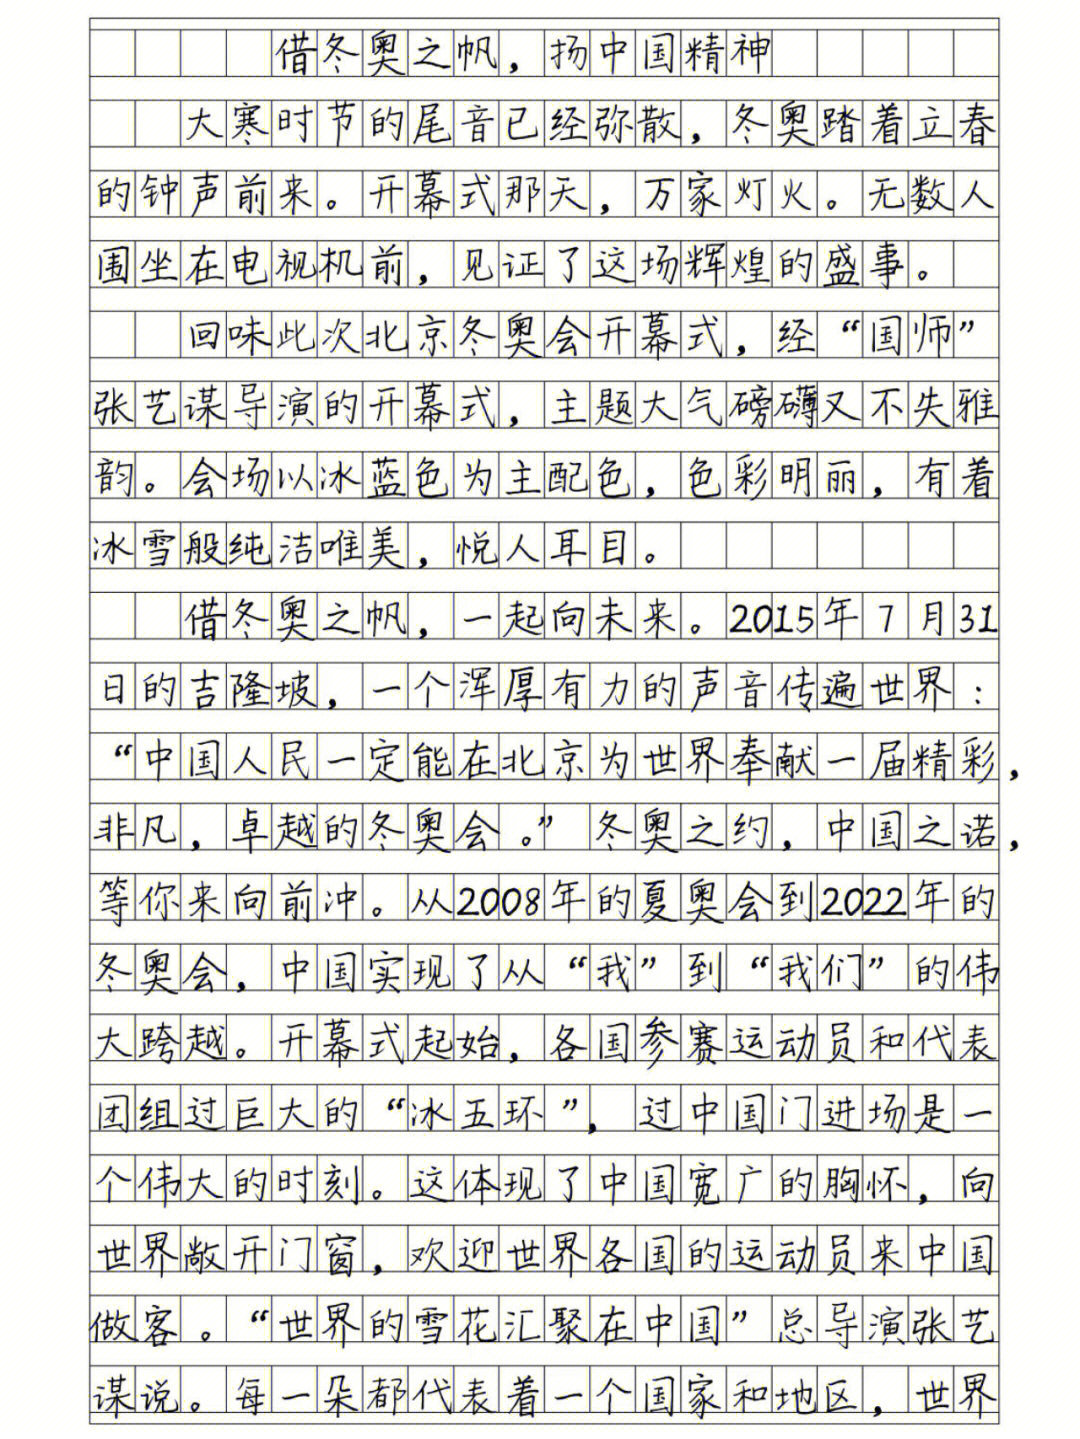 借冬奥之帆，扬中国精神
大寒时节的尾音已经弥散，冬奥踏着立春
的钟声前来。开幕式那天，万家灯火。无数人
围坐在电视机前，见证了这场辉煌的盛事。
回味此次北京冬奥会开幕式，经“国师”
张艺谋导演的开幕式，主题大气磅礴又不失雅
韵。会场以冰蓝色为主配色，色彩明丽，有着
冰雪般纯洁唯美，悦人耳目。
借冬奥之帆，一起向未来。2015年7月31
日的吉隆坡，一个浑厚有力的声音传遍世界：
“中国人民一定能在北京为世界奉献一届精彩，
非凡，卓越的冬奥会。”冬奥之约，中国之诺，
等你来向前冲。从2008年的夏奥会到2022年的
冬奥会，中国实现了从“我”到“我们”的伟
大跨越。开幕式起始，各国参赛运动员和代表
团组过巨大的“冰五环”，过中国门进场是一
个伟大的时刻。这体现了中国宽广的胸怀，向
世界敞开门窗，欢迎世界各国的运动员来中国
做客。“世界的雪花汇聚在中国”总导演张艺
谋说。每一朵都代表着一个国家和地区，世界